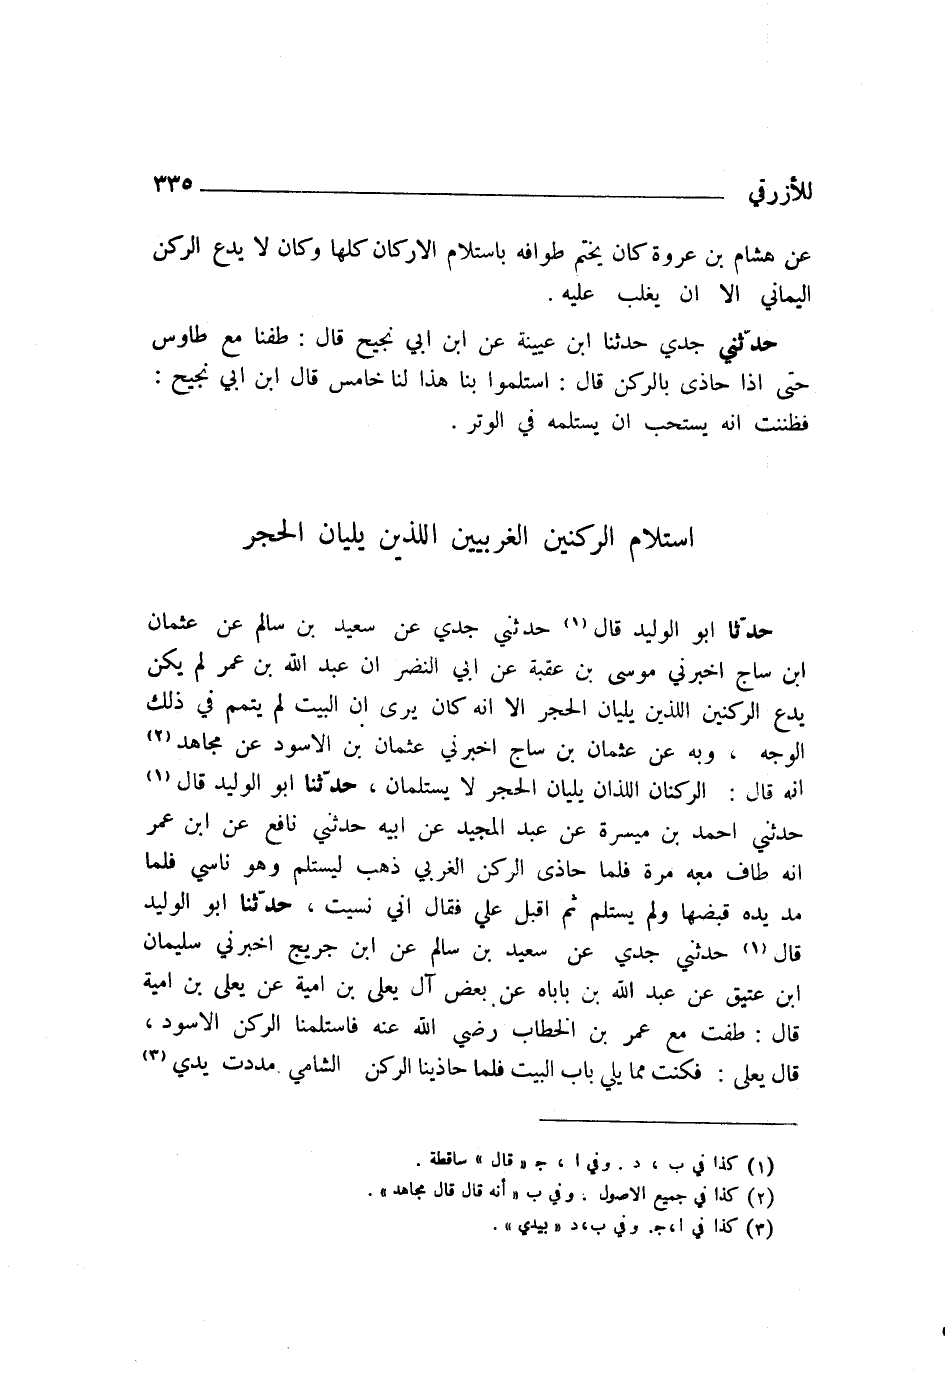 للأزرقي ٣٣٥
عن هشام بن عروة كان يختم طوافه باستلام الاركان كلها وكان لا يدع الركن
اليماني الا ان يغلب عليه .
حدّثني جدي حدثنا ابن عيينة عن ابن ابي نجيح قال : طفنا مع طاوس
حتى اذا حاذى بالركن قال : استلموا بنا هذا لنا خامس قال ابن ابي نجيح :
فظننت انه يستحب ان يستلمه في الوتر .
استلام الركنين الغربيين اللذين يليان الحجر
حدّثنا ابو الوليد قال (١) حدثني جدي عن سعيد بن سالم عن عثمان
ابن ساج اخبرني موسى بن عقبة عن ابي النضر ان عبد الله بن عمر لم يكن
يدع الركنين اللذين يليان الحجر الا انه كان يرى ان البيت لم يتمم في ذلك
الوجه ، وبه عن عثمان بن ساج اخبرني عثمان بن الاسود عن مجاهد (٢)
انه قال : الركنان اللذان يليان الحجر لا يستلمان ، حدّثنا ابو الوليد قال (١)
حدثني احمد بن ميسرة عن عبد المجيد عن ابيه حدثني نافع عن ابن عمر
انه طاف معه مرة فلما حاذى الركن الغربي ذهب ليستلم وهو ناسي فلما
مد يده قبضها ولم يستلم ثم اقبل علي فقال اني نسيت ، حدّثنا ابو الوليد
قال (١) حدثني جدي عن سعيد بن سالم عن ابن جريج اخبرني سليمان
ابن عتيق عن عبد الله بن باباه عن بعض آل يعلى بن امية عن يعلى بن امية
قال : طفت مع عمر بن الخطاب رضي الله عنه فاستلمنا الركن الاسود ،
قال يعلى : فكنت مما يلي باب البيت فلما حاذينا الركن الشامي مددت يدي (٣)
(١) كذا في ب ، د . وفي ا ، جـ « قال » ساقطة .
(٢) كذا في جميع الاصول . وفي ب « أنه قال قال مجاهد » .
(٣) كذا في ا ، جـ. وفي ب ، د « بيدي » .